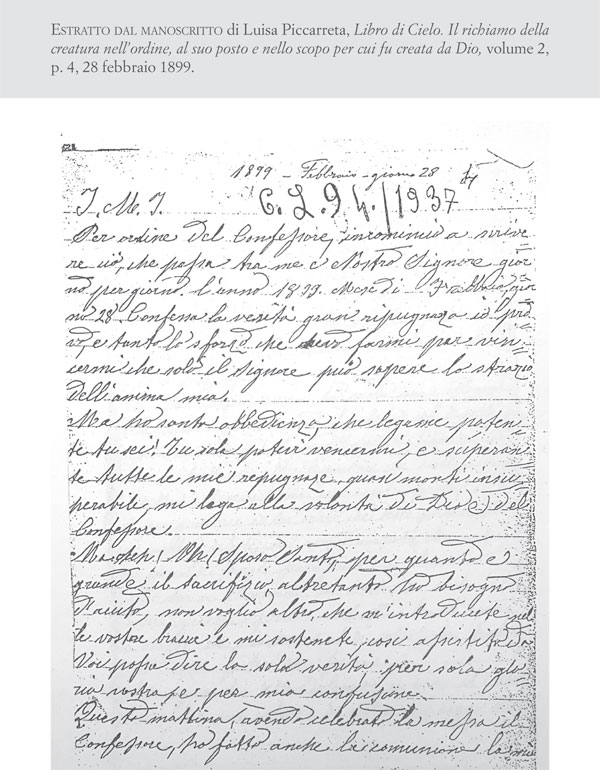 ESTRATTO DAL MANOSCRITTO di Luisa Piccarreta, Libro di Cielo. Il richiamo della
creatura nell'ordine, al suo posto e nello scopo per cui fu creata da Dio, volume 2,
p. 4, 28 febbraio 1899.
1899 - Febbraio - giorno 28
J. M. J.
C. L. 9 4. / 1937
Per ordine del Confessore, incomincio a scrive=
re ciò, che passa tra me e Nostro Signore gior
no per giorno. l'anno 1899. Mese di Febbraio, gior
no 28. Confesso la verità gran ripugnaza io pro
vo, e tanto lo sforzo che devo farmi per vin=
cermi che solo il Signore può sapere lo strazio
dell'anima mia.
Ma ho santa obbedienza, che legame poten=
te tu sei! Tu sola potevi vencermi, e superan=
te tutte le mie repugnaze, quasi monti insu=
perabile, mi lega alla volontà di Dio e del
Confessore.
Ma deh! Oh! Sposo Santo, per quanto è
grande il sacrifizio, altretanto ho bisogno
d'aiuto, non voglio altro, che m'introducete nel
le vostre braccie e mi sostenete, così assistita da
Voi possa dire la sola verità, per sola glo
ria vostra, e per mia confusione.
Questa mattina, avendo celebrato la messa il
Confessore, ho fatto anche la comunione. la mia